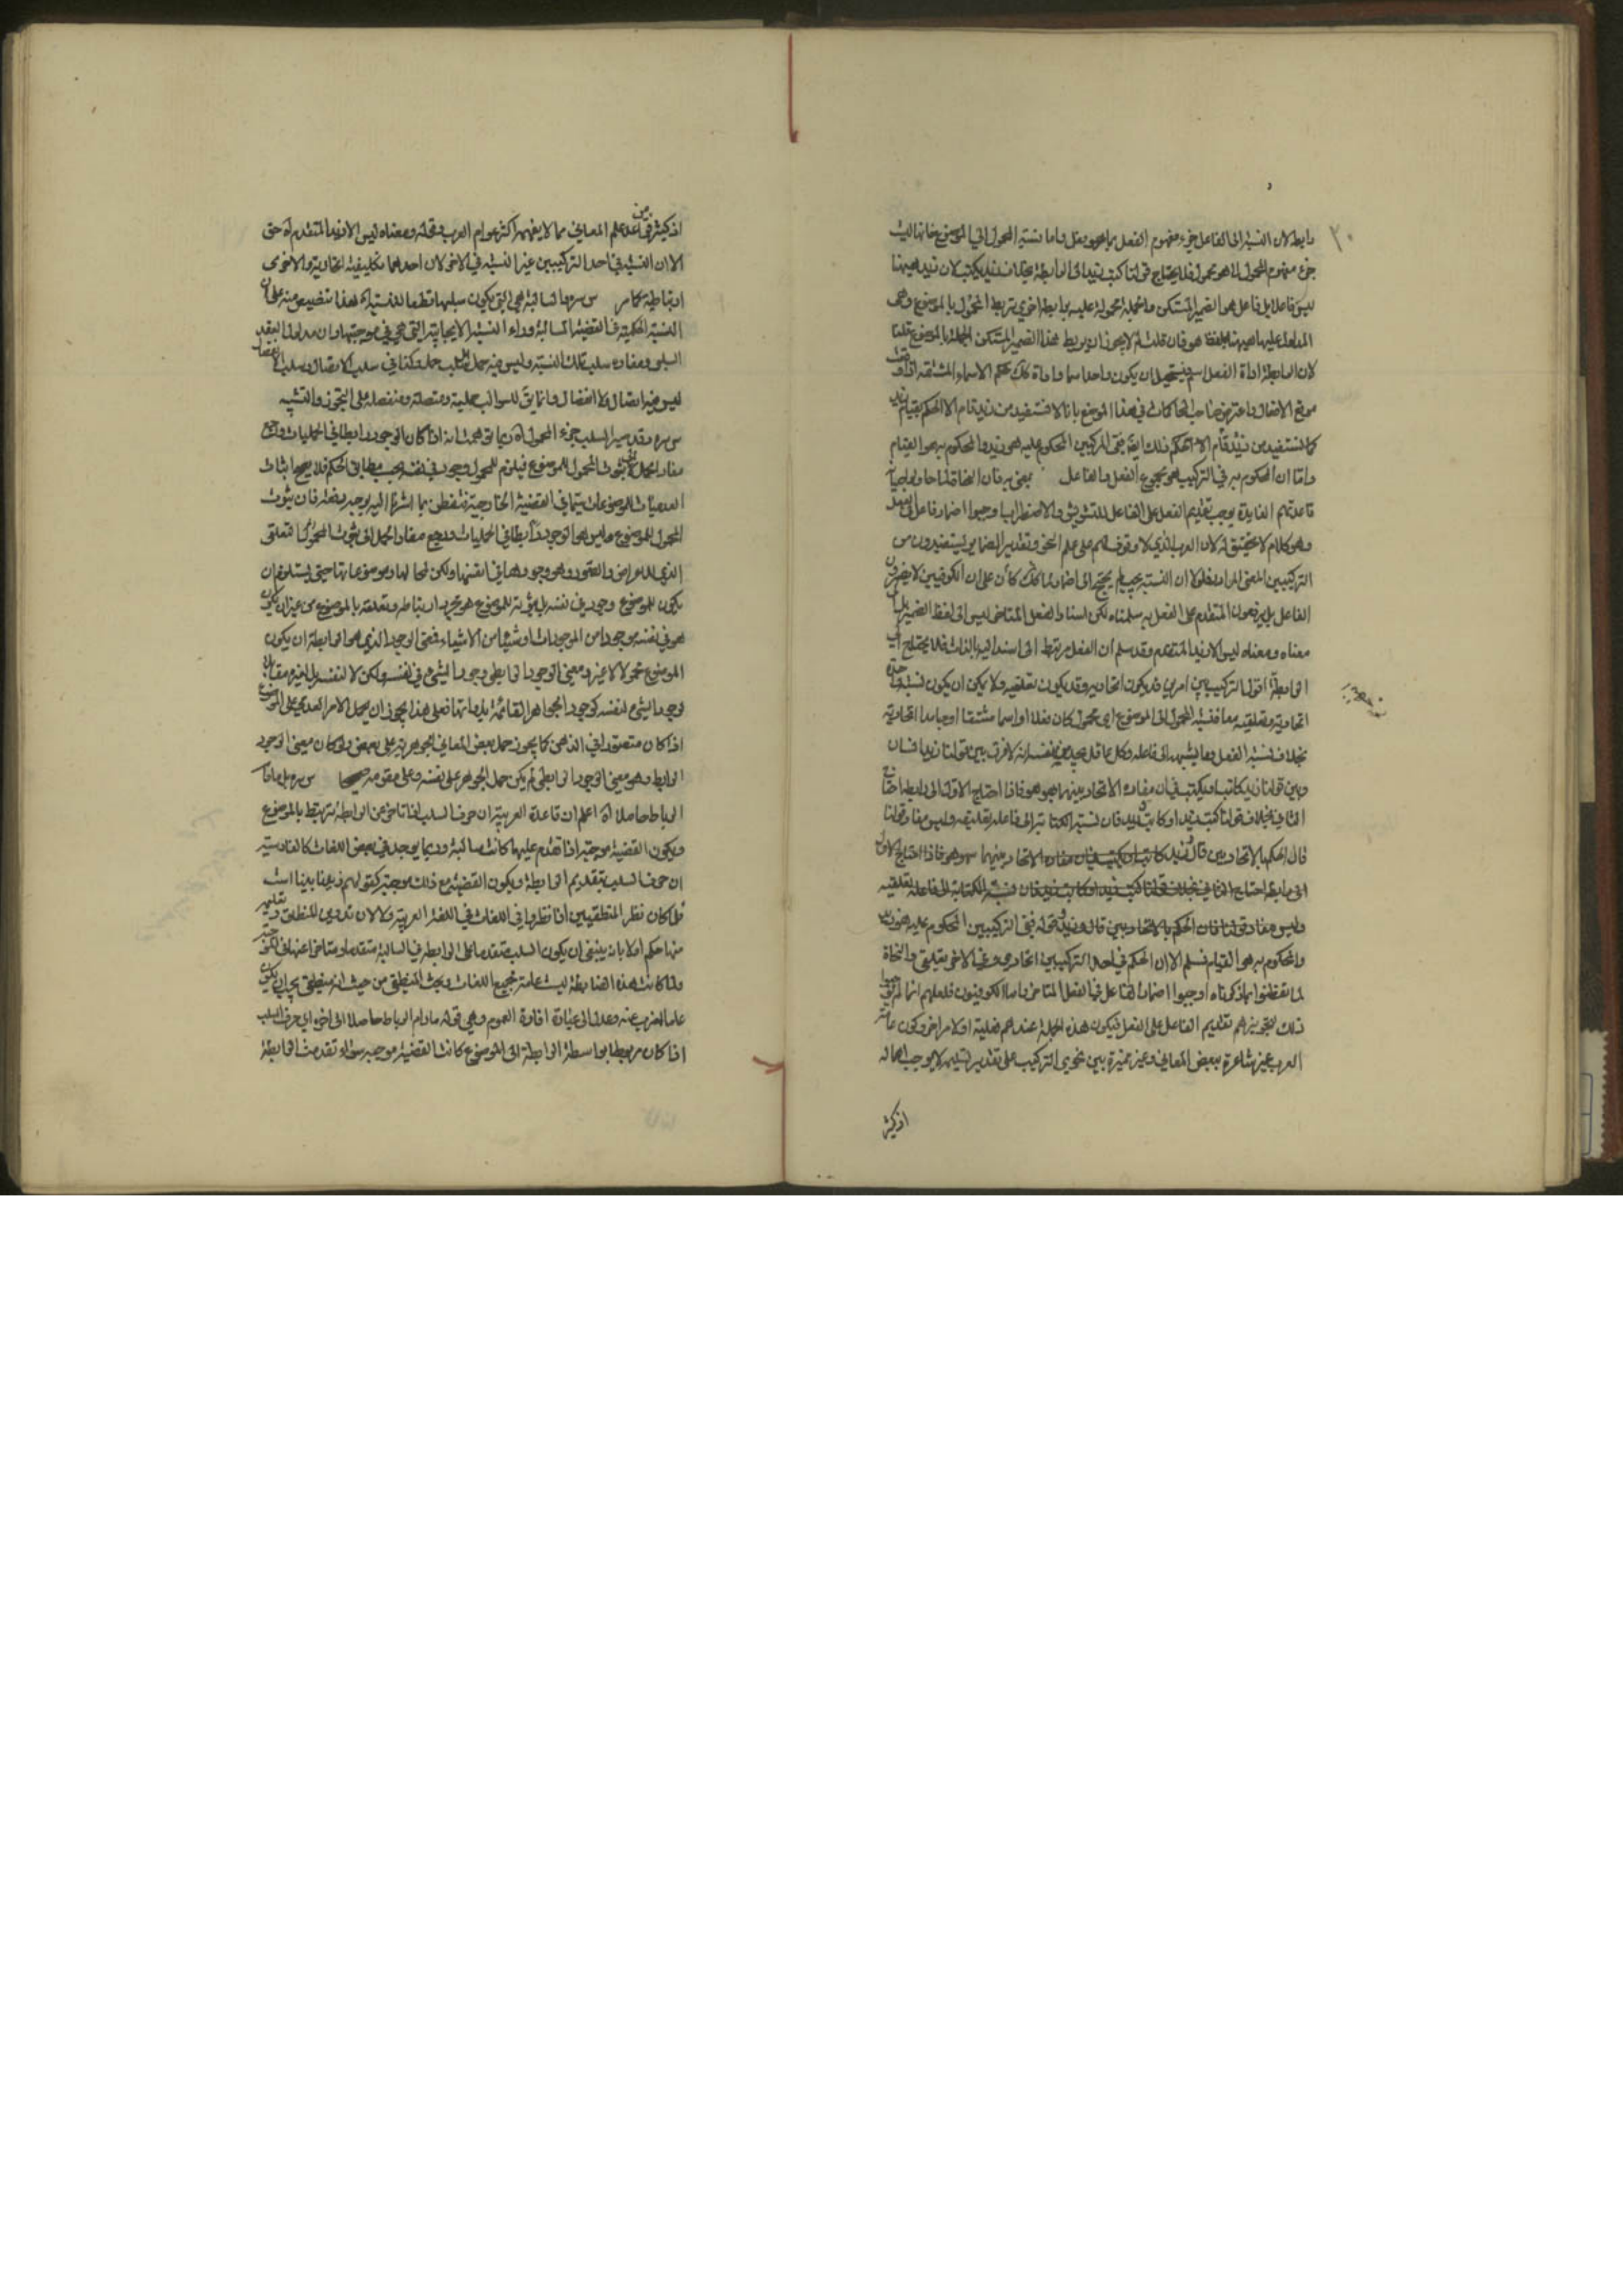 ٣٠
رابطه لان النسبة الى الفاعل جزء مفهوم الفعل واما نسبة المحول الى الموضوع فانها ليست
جزء مفهوم المحول بما هو محمول فلا يحتاج قولنا كتب زيد الى الرابطة بخلاف زيد يكتب لان زيد ههنا
ليس فاعلا بل فاعل هو الضمير المستكن والجملة محمولة عليه برابطة اخرى تربط المحمول بالموضوع وهى
المدلول عليها ههنا بلفظة هو فان قلت لم لا يجوز ان يربط هذا الضمير المستكن الجملة بالموضوع قلنا
لان الرابطة اداة الفعل اسم ويستحيل ان يكون واحدا سما واداة كذلك حكم الاسماء المشتقه اذا
موقع الافعال واعترض صاحب المحاكمات في هذا الموضع بانا لا نستفيد من زيد قام الا الحكم بقيام
كما نستفيد من زيد قام الا الحكم كذلك ففى التركيبين المحكوم عليه هو زيد والمحكوم به هو القيام
واما ان المحكوم به في التركيب هو مجموع الفعل والفاعل فان النحاة لما حاولوا
قاعدتهم الفايدة يوجب تقديم الفعل على الفاعل للتشويش والاضطراب اوجبوا اضمار فاعل
وهو كلام لا تحقيق له لان العرب الذي لا وقوف لهم على علم النحو وتقدير الضماير يستفيدون من
التركيبين المعنى المراد فلولا ان النسبة لم يحتج الى اضمار لما كان على ان الكوفيين لا يضمرون
الفاعل بل يرفعون المتقدم على الفعل به سلمناه لكن اسناد الفعل المتاخر ليس الى لفظ الضمير بل الى
معناه ومعناه ليس الا زيد المتقدم وقد سلم ان الفعل مرتبط الى اسند اليه بالذات فلا يحتاج الى
الرابطة اقول التركيب بين امرين قد يكون اتحاديه وقد يكون تعلقيه ولا يمكن ان يكون نسبة واحدة
اتحادية وتعلقيه معا فنسبة المحمول الى الموضوع اى محمول كان فعلا او اسما مشتقا او جامدا اتحادية
بخلاف نسبة الفعل وما يشبهه الى فاعله وكل عاقل يجد من نفسه انه لا فرق بين قولنا زيد انسان
وبين قولنا زيد كاتب او يكتب في ان مفاده الاتحاد بينهما هو هو فاذا احتاج الاول الى رابطه احتاج
الثاني بخلاف قولنا كتب زيد او كاتب زيد فان نسبة الكتابة الى فاعله تعلقيه وليس مفاد قولنا
قال الحكم بالاتحاد بين قال وزيد كاتب او يكتب في ان مفاده الاتحاد بينهما هو هو فاذا احتاج الاول
الى رابطه احتاج الثاني بخلاف قولنا كتب زيد او كاتب زيد فان نسبة الكتابة الى فاعله تعلقيه
وليس مفاد قولنا قال الحكم بالاتحاد بين قال وزيد قوله ففى التركيبين المحكوم عليه هو زيد
والمحكوم به هو القيام مسلم الا ان الحكم في احد التركيبين اتحادى وفي الاخر تعلقى والنحاة
لما تفطنوا بما ذكرناه اوجبوا اضمار الفاعل في الفعل المتاخر واما الكوفيون فلعلهم انما لم يوجبوا
ذلك لتجويزهم تقديم الفاعل على الفعل فيكون هذه الجملة عندهم فعلية او لامر اخر وكون عامة
العرب غير شاعرة ببعض المعاني وغير مميزة بين نحوى التركيب على تقدير تسليمه لا يوجب اهماله
اذ كثير
اذ كثير من قواعد علم المعاني مما لا يفهمه اكثر عوام العرب وقوله ومعناه ليس الا زيد المتقدم اه حق
الا ان النسبة في احد التركيبين غير النسبة في الاخر لان احدهما تكليفية اتحادية والاخرى
ارتباطية كما مر س سره السالبة هي التي يكون سلبها قطعا للنسبة اه هذا تنصيص منه على ان
النسبة الحكمية في القضية السالبة وراء النسبة الايجابية التي هي في موجبتها وان مدلول العقد
السلبى ومفاده سلب تلك النسبة وليس فيه حمل بل سلب حمل وكذا في سلب الاتصال وسلب الانفصال
ليس فيه اتصال ولا انفصال وانما يق للسوالب حملية ومتصلة ومنفصلة على التجوز والتشبيه
س سره وقد صير السلب جزء المحمول اه ربما يق هنا انه اذا كان الوجود رابطا في الحمليات وارجع
مفاد الحمل الى ثبوت المحمول للموضوع فيلزم للمحمول وجود في نفسه بحسب مطابق الحكم فلا يصح اثبات
العدميات للموضوعات سيما في القضية الخارجية فتفطن بما اشرنا اليه يوجب دفعه فان ثبوت
المحمول للموضوع وليس هو الوجود رابطا في الحمليات ومرجع مفاد الحمل الى ثبوت المحمول المتعلق
الذي للاعراض والصور وهو وجودها في انفسها ولكن لمحالها وموضوعاتها حتى يستلزم ان
يكون للموضوع وجود في نفسه بل ثبوته للموضوع هو مجرد ارتباطه وتعلقه بالموضوع من غير ان يكون
هو في نفسه موجودا من الموجودات او شيئا من الاشياء فمعنى الوجود الذي هو الرابطة ان يكون
الموضوع محمولا لا غير ومعنى الوجود الرابطى وجود الشىء في نفسه ولكن لا لنفسه بل لغيره مقابل
لوجود الشىء لنفسه كوجود الجواهر القائمة بذواتها فعلى هذا يجوز ان يحمل الامر العدمى على الموضوع
اذا كان متصورا في الذهن كما يجوز حمل بعض المعاني الجوهرية على بعض ولو كان معنى الوجود
الرابط هو معنى الوجود الرابطى لم يكن حمل الجوهر على نفسه وعلى مقومه صحيحا س سره بل مادام
الرباط حاصلا اه اعلم ان قاعدة العربية ان حرف السلب اذا تاخر عن الرابطة يرتبط بالموضوع
ويكون القضية موجبة واذا تقدم عليها كانت سالبة وربما يوجد في بعض اللغات كالفارسية
ان حرف السلب يتقدم الرابطة ويكون القضية مع ذلك موجبة كقولهم زيد نابينا است
ولما كان نظر المنطقيين اذا نظروا في اللغات في اللغة العربية ولا لان تدوين المنطق وتعليمه
منها حكم اولا بانه ينبغي ان يكون السلب متقدما على الرابطة في السالبة متقدما او متاخرا عنها في الموجبة
ولما كانت هذه الضابطة ليست عامة لجميع اللغات وبحث المنطقى من حيث انه منطقى يجب ان يكون
عاما اضرب عنه وعدل الى عبارة افادة العموم وهى قوله مادام الرباط حاصلا الى اخره اى حرف السلب
اذا كان مربوطا بواسطة الرابطة الى الموضوع كانت القضية موجبة سواء تقدمت الرابطة